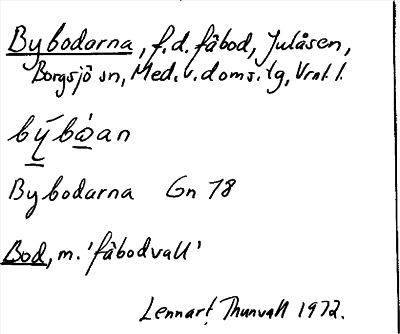 Bybodarna, f.d. fäbod, Julåsen,
Borgsjö sn, Med. v. doms. tg, Vrnl l.
býbòan
Bybodarna Gn 78
Bod, m. 'fäbodvall'
Lennart Thunvall 1972.